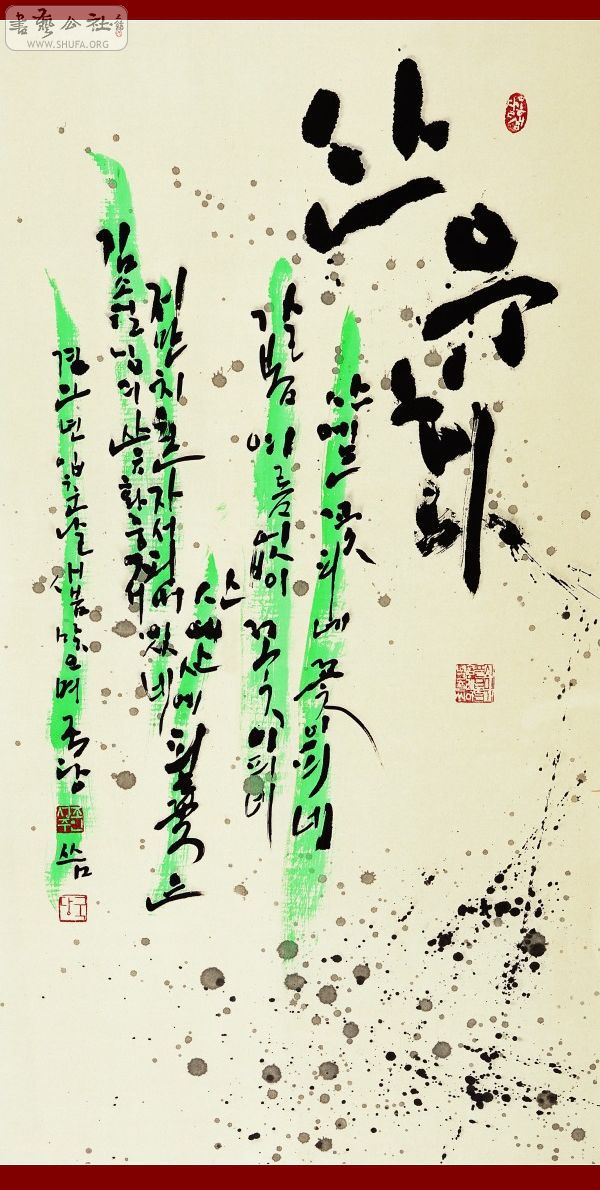 書藝公社
WWW.SHUFA.ORG
산유화
산에는 꽃 피네 꽃이 피네
갈 봄 여름 없이 꽃이 피네
산에 산에 피는 꽃은
저만치 혼자서 피어 있네
김소월님의 산유화 중에서
경인년 입춘날 새봄 맞으며 국당 씀